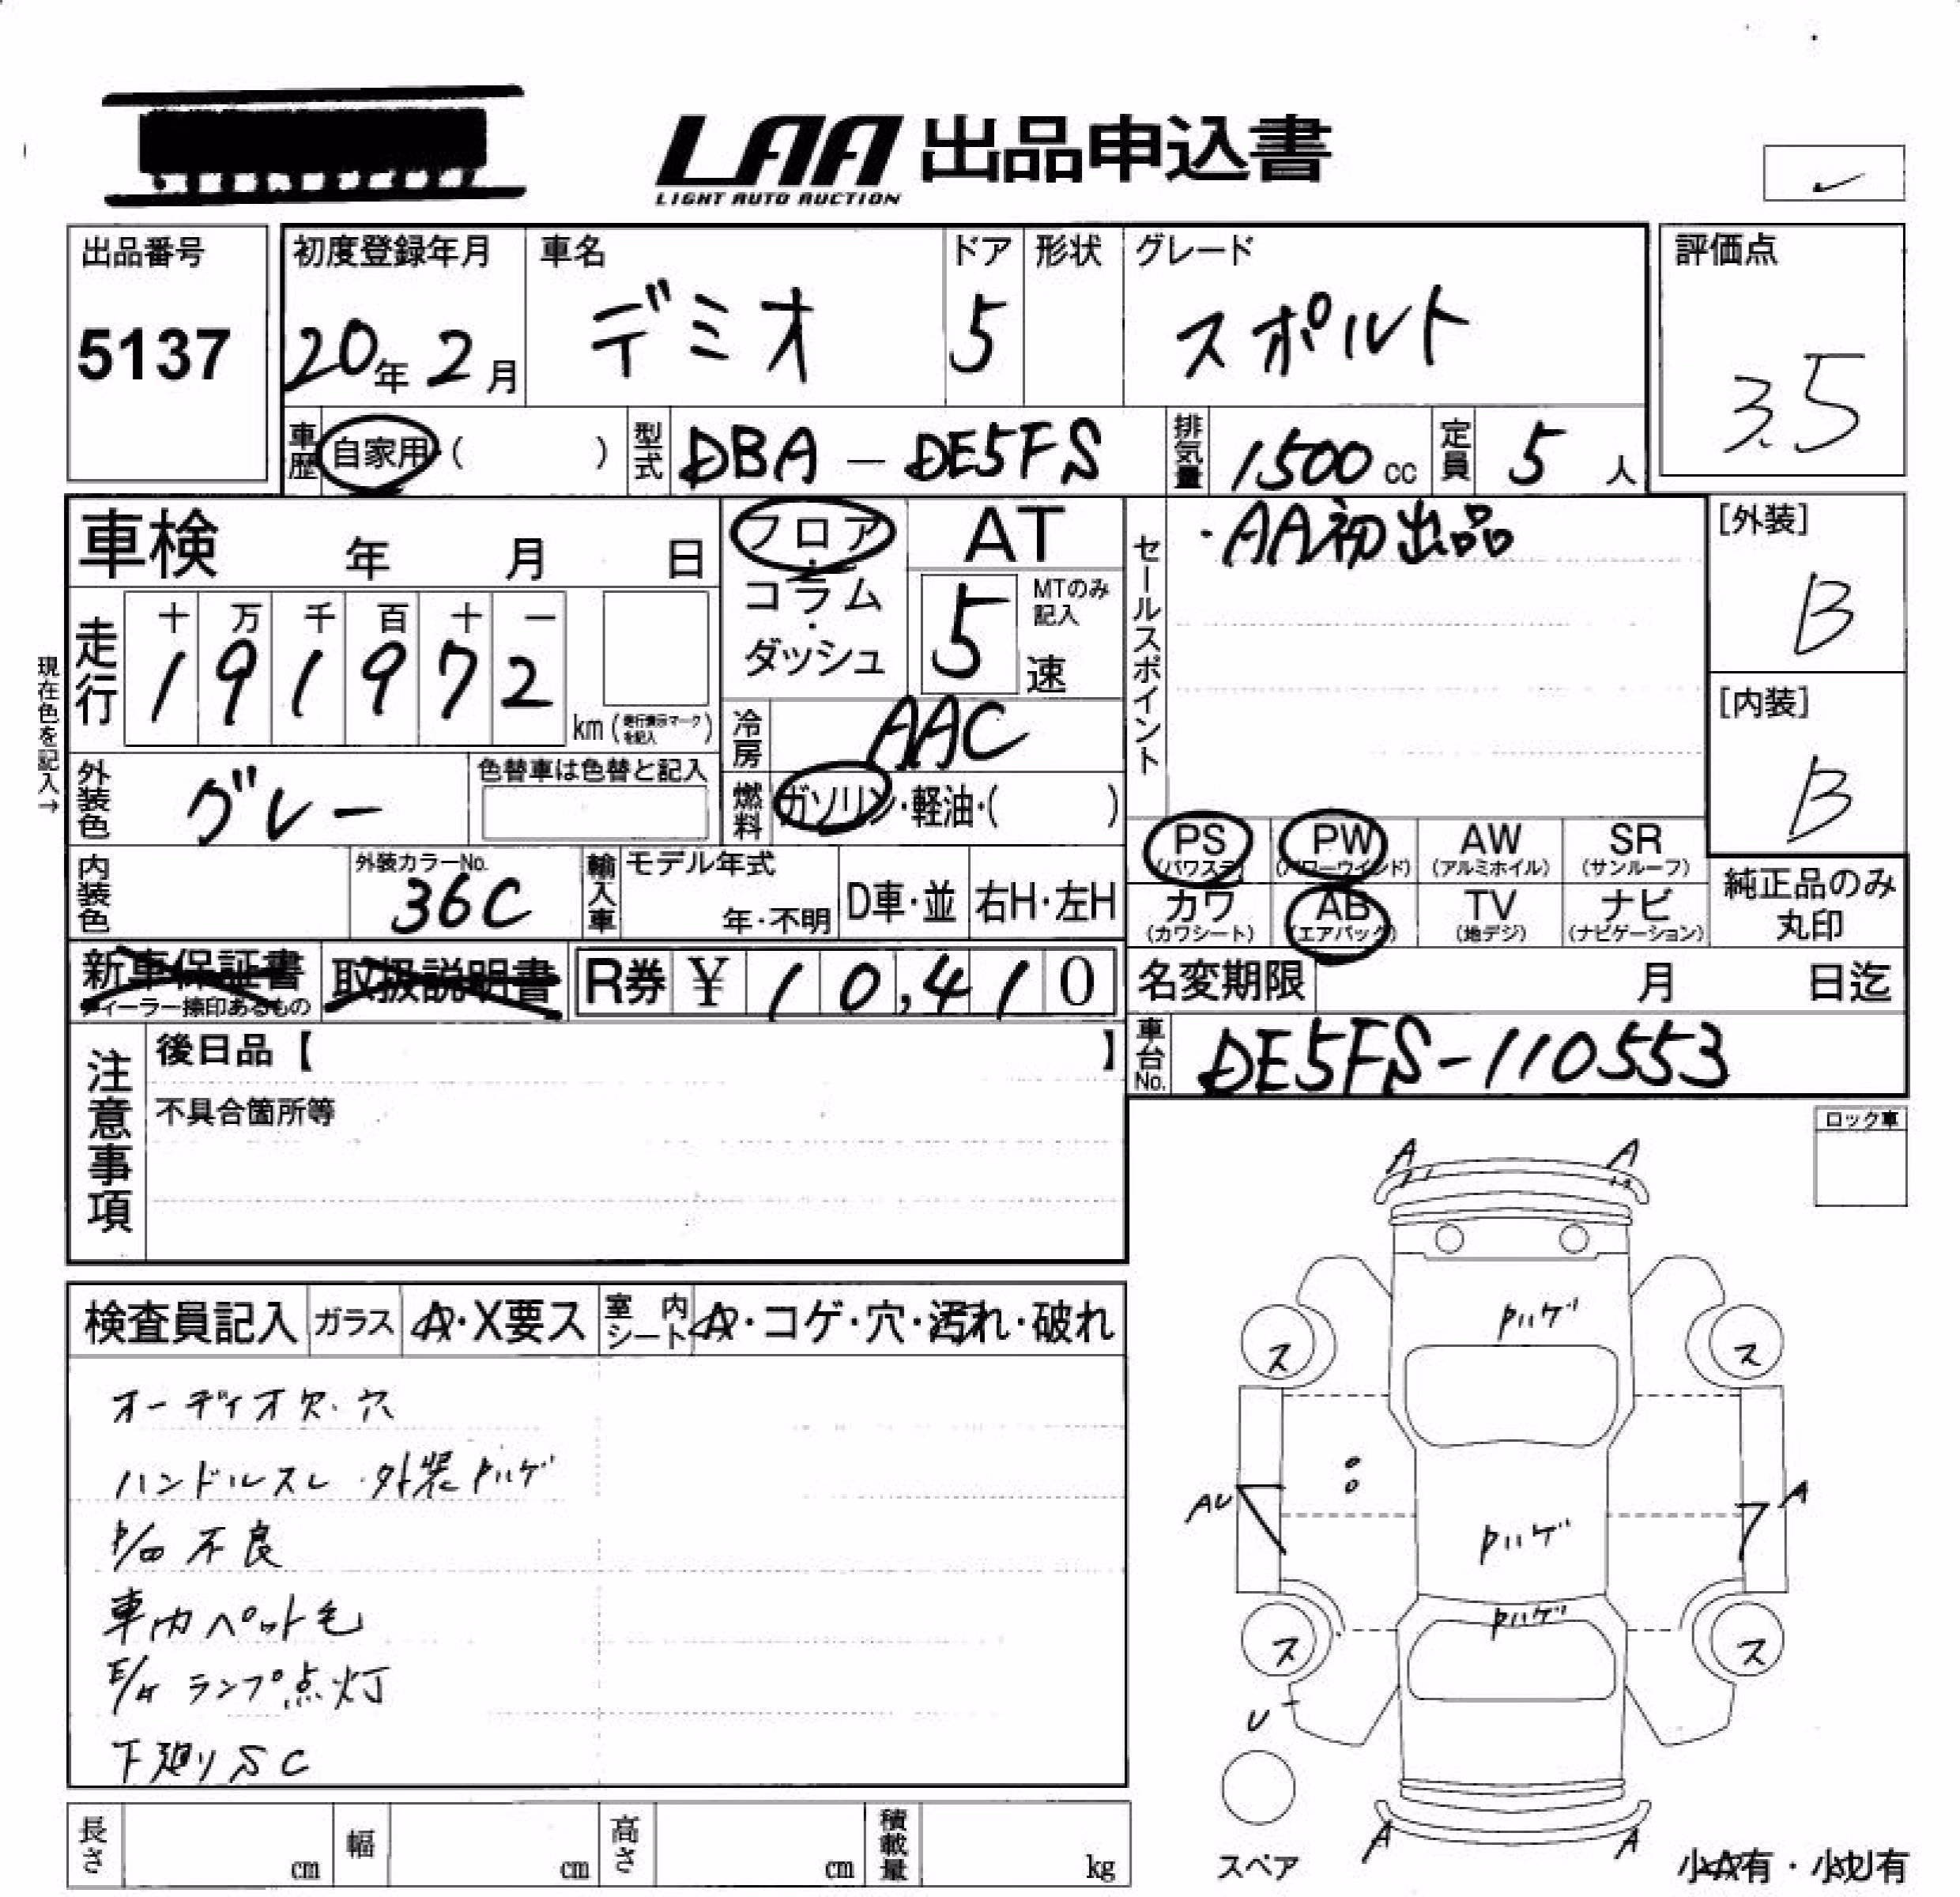 LAA 出品申込書
LIGHT AUTO AUCTION
出品番号
5137
初度登録年月
20年 2月
車名
デミオ
ドア
5
形状
グレード
スポルト
評価点
3.5
車歴
自家用・( )
型式
DBA - DE5FS
排気量
1500 cc
定員
5 人
車検 年 月 日
フロア・コラム・ダッシュ
AT
5 速
MTのみ記入
セールスポイント
・AA初出品
[外装]
B
[内装]
B
現在色を記入→
走行
十 万 千 百 十 一
1 9 1 9 7 2
km (走行表示マークを記入)
冷房
AAC
外装色
グレー
色替車は色替と記入
燃料
ガソリン・軽油・( )
PS (パワステ)
PW (パワーウインド)
AW (アルミホイル)
SR (サンルーフ)
内装色
外装カラーNo.
36C
輸入車
モデル年式
年・不明
D車・並
右H・左H
カワ (カワシート)
AB (エアバック)
TV (地デジ)
ナビ (ナビゲーション)
純正品のみ丸印
新車保証書
ディーラー捺印あるもの
取扱説明書
R券 ¥ 10,410
名変期限 月 日迄
注意事項
後日品【 】
不具合箇所等
車台No.
DE5FS-110553
ロック車
検査員記入
ガラス
A・X要ス
室内シート
A・コゲ・穴・汚れ・破れ
オーディオ欠・穴
ハンドルスレ・外装Pハゲ
P/ 不良
車内ペット毛
E/ ランプ点灯
下廻りSC
A
A
Pハゲ
ス
ス
AU
A
Pハゲ
Pハゲ
ス
ス
U
A
A
スペア
小A有・小U有
長さ cm
幅 cm
高さ cm
積載量 kg